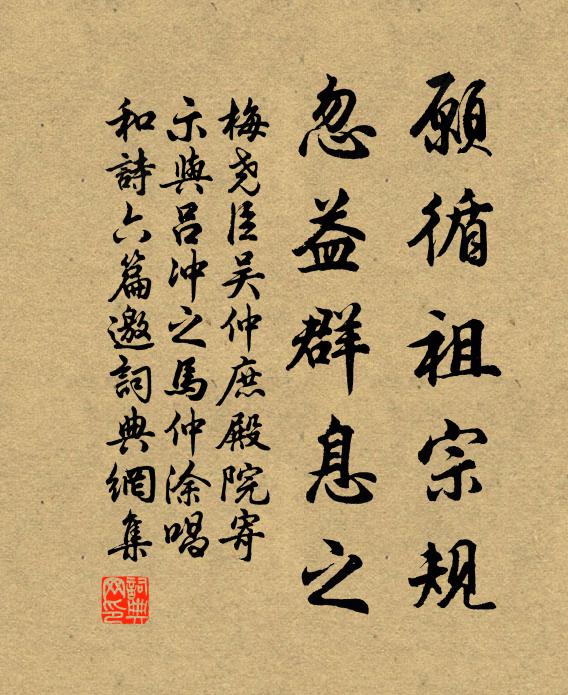 願循祖宗規
忽益群息之
梅堯臣吳仲庶殿院寄
示與呂冲之馬仲涂唱
和詩六篇邀詞典網集
詞典网印